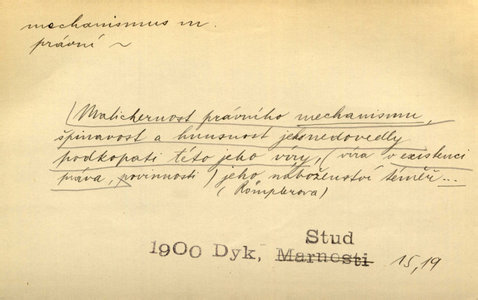 mechanismus m.
právní ~
(Malichernost právního mechanismu,
špinavost a hnusnost jeho nedovedly
podkopati této jeho víry, (víra v existenci
práva, povinnosti) jeho náboženství téměř...
( Römplerova)
Stud
1900 Dyk, Marnosti 15,19